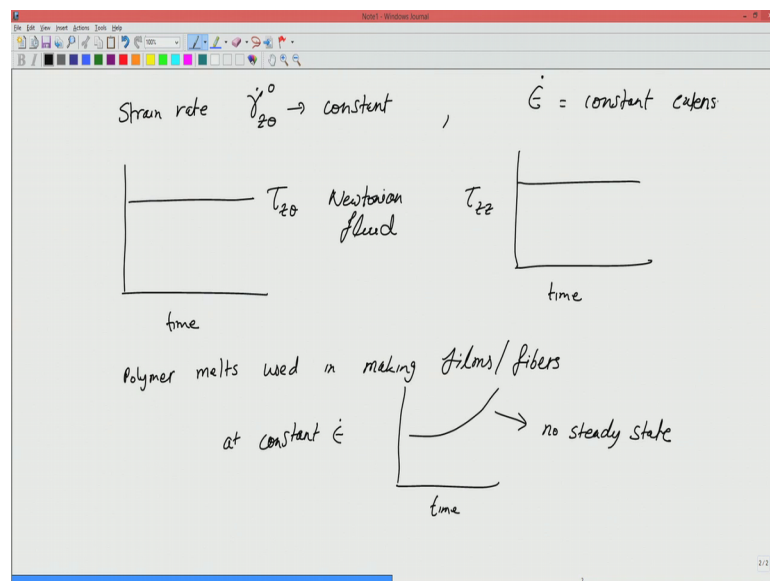 Note1 - Windows Journal
File Edit View Insert Actions Tools Help
100%
B I
Strain rate γ̇°zθ → constant , ϵ̇ = constant extens
τzθ Newtonian fluid
τzz
time
time
Polymer melts used in making films/fibers
at constant ϵ̇
→ no steady state
time
2/2